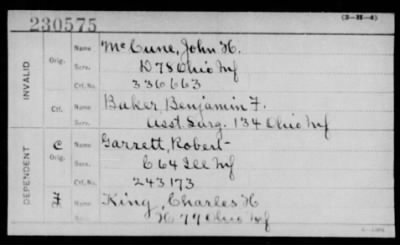 230575
(3-H-4)
INVALID
Orig.
Name McCune, John H.
Serv. D 78 Ohio Inf
Ctf. No. 336663
Ctf.
Name Baker, Benjamin F.
Serv. Asst. Surg. 134 Ohio Inf
DEPENDENT
C
Orig.
Name Garrett, Robert
Serv. C 64 Ill Inf
Ctf. No. 243173
Name King, Charles H
Serv. H 77 Ohio Inf